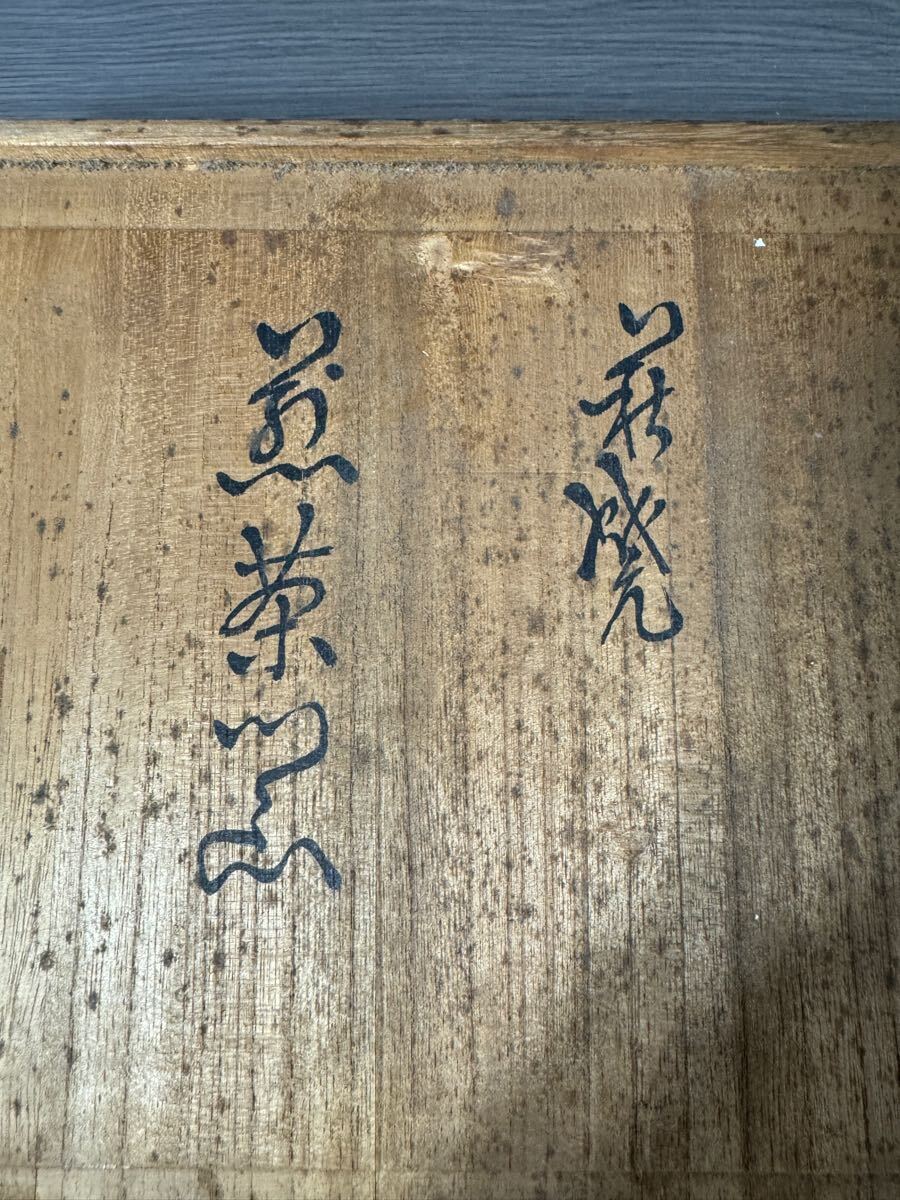 萩焼
煎茶器